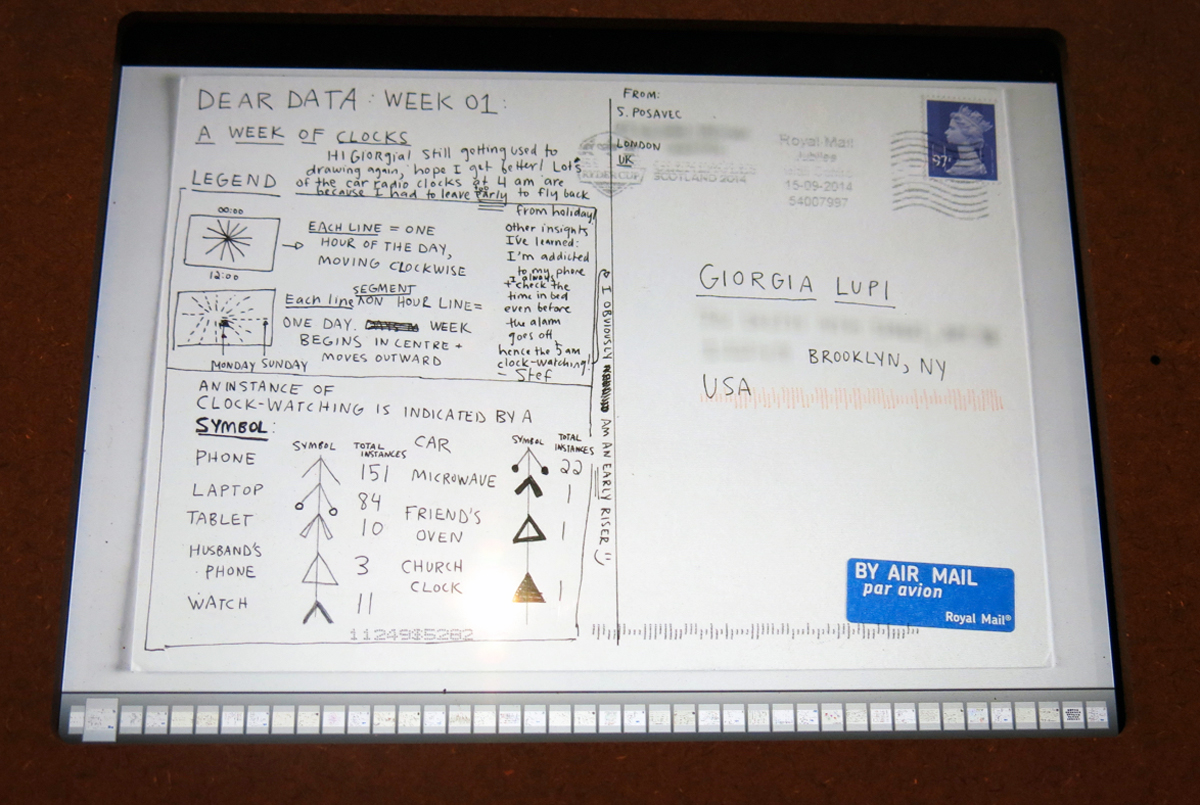 DEAR DATA: WEEK 01:
A WEEK OF CLOCKS
HI Giorgia! Still getting used to
drawing again, hope I get better! Lots
of the car radio clocks at 4 am are
because I had to leave early to fly back
from holiday!
other insights
I've learned:
I'm addicted
to my phone
+ I always check the
time in bed
even before
the alarm
goes off,
hence the 5 am
clock-watching!
– Stef
LEGEND
00:00
12:00
EACH LINE = ONE
HOUR OF THE DAY,
MOVING CLOCKWISE
Each line SEGMENT ON HOUR LINE=
ONE DAY. WEEK
BEGINS IN CENTRE +
MOVES OUTWARD
MONDAY SUNDAY
I OBVIOUSLY AM AN EARLY RISER
AN INSTANCE OF
CLOCK-WATCHING IS INDICATED BY A
SYMBOL:
SYMBOL TOTAL INSTANCES
PHONE 151
LAPTOP 84
TABLET 10
HUSBAND'S
PHONE 3
WATCH 11
SYMBOL TOTAL INSTANCES
CAR 22
MICROWAVE 1
FRIEND'S
OVEN 1
CHURCH
CLOCK 1
11249$5282
FROM:
S. POSAVEC
LONDON
UK
RYDER CUP
SCOTLAND 2014
Royal Mail
Jubilee
15-09-2014
54007997
97p
GIORGIA LUPI
BROOKLYN, NY
USA
BY AIR MAIL
par avion
Royal Mail®